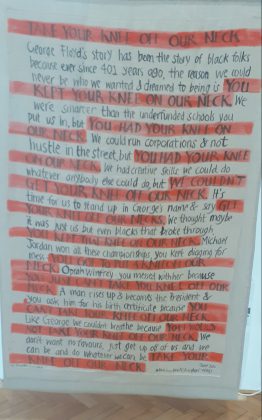 TAKE YOUR KNEE OFF OUR NECK
George Floyd's story has been the story of black folks
because ever since 401 years ago, the reason we could
never be who we wanted & dreamed to being is YOU
KEPT YOUR KNEE ON OUR NECK. We
were smarter than the underfunded schools you
put us in, but YOU HAD YOUR KNEE ON
OUR NECK. We could run corporations & not
hustle in the street, but YOU HAD YOUR KNEE
ON OUR NECK. We had creative skills we could do
whatever anybody else could do, but WE COULDN'T
GET YOUR KNEE OFF OUR NECK. It's
time for us to stand up in George's name & say GET
YOUR KNEE OFF OUR NECKS. We thought maybe
it was just us but even blacks that broke through,
YOU KEPT THAT KNEE ON OUR NECK. Michael
Jordan won all these championships, you kept digging for
mess YOU GOT TO PUT A KNEE ON OUR
NECK. Oprah Winfrey you messed with her because
YOU JUST CAN'T TAKE YOUR KNEE OFF OUR
NECK. A man rises up & becomes the president &
you ask him for his birth certificate because YOU
CAN'T TAKE YOUR KNEE OFF OUR NECK.
Like George we couldn't breathe because YOU WOULD
NOT TAKE YOUR KNEE OFF OUR NECK. We
don't want no favours, just get up off of us and we
can be and do whatever we can be TAKE YOUR
KNEE OFF OUR NECK